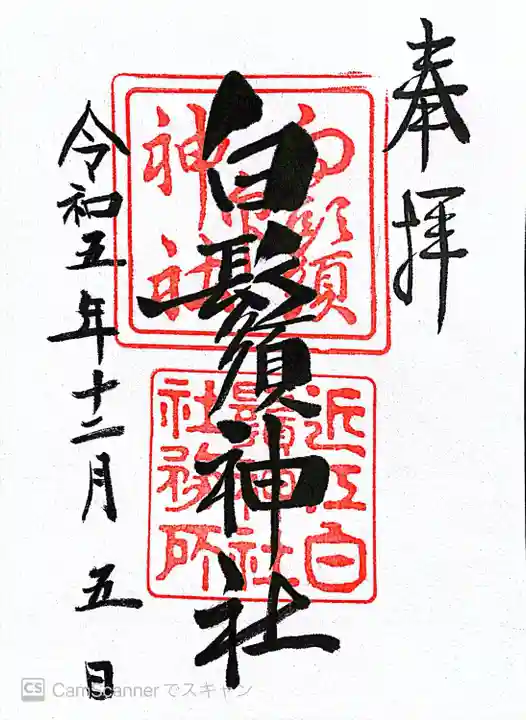 奉拝
白鬚神社
白鬚神社
近江白鬚神社社務所
令和五年十二月五日
CS CamScannerでスキャン